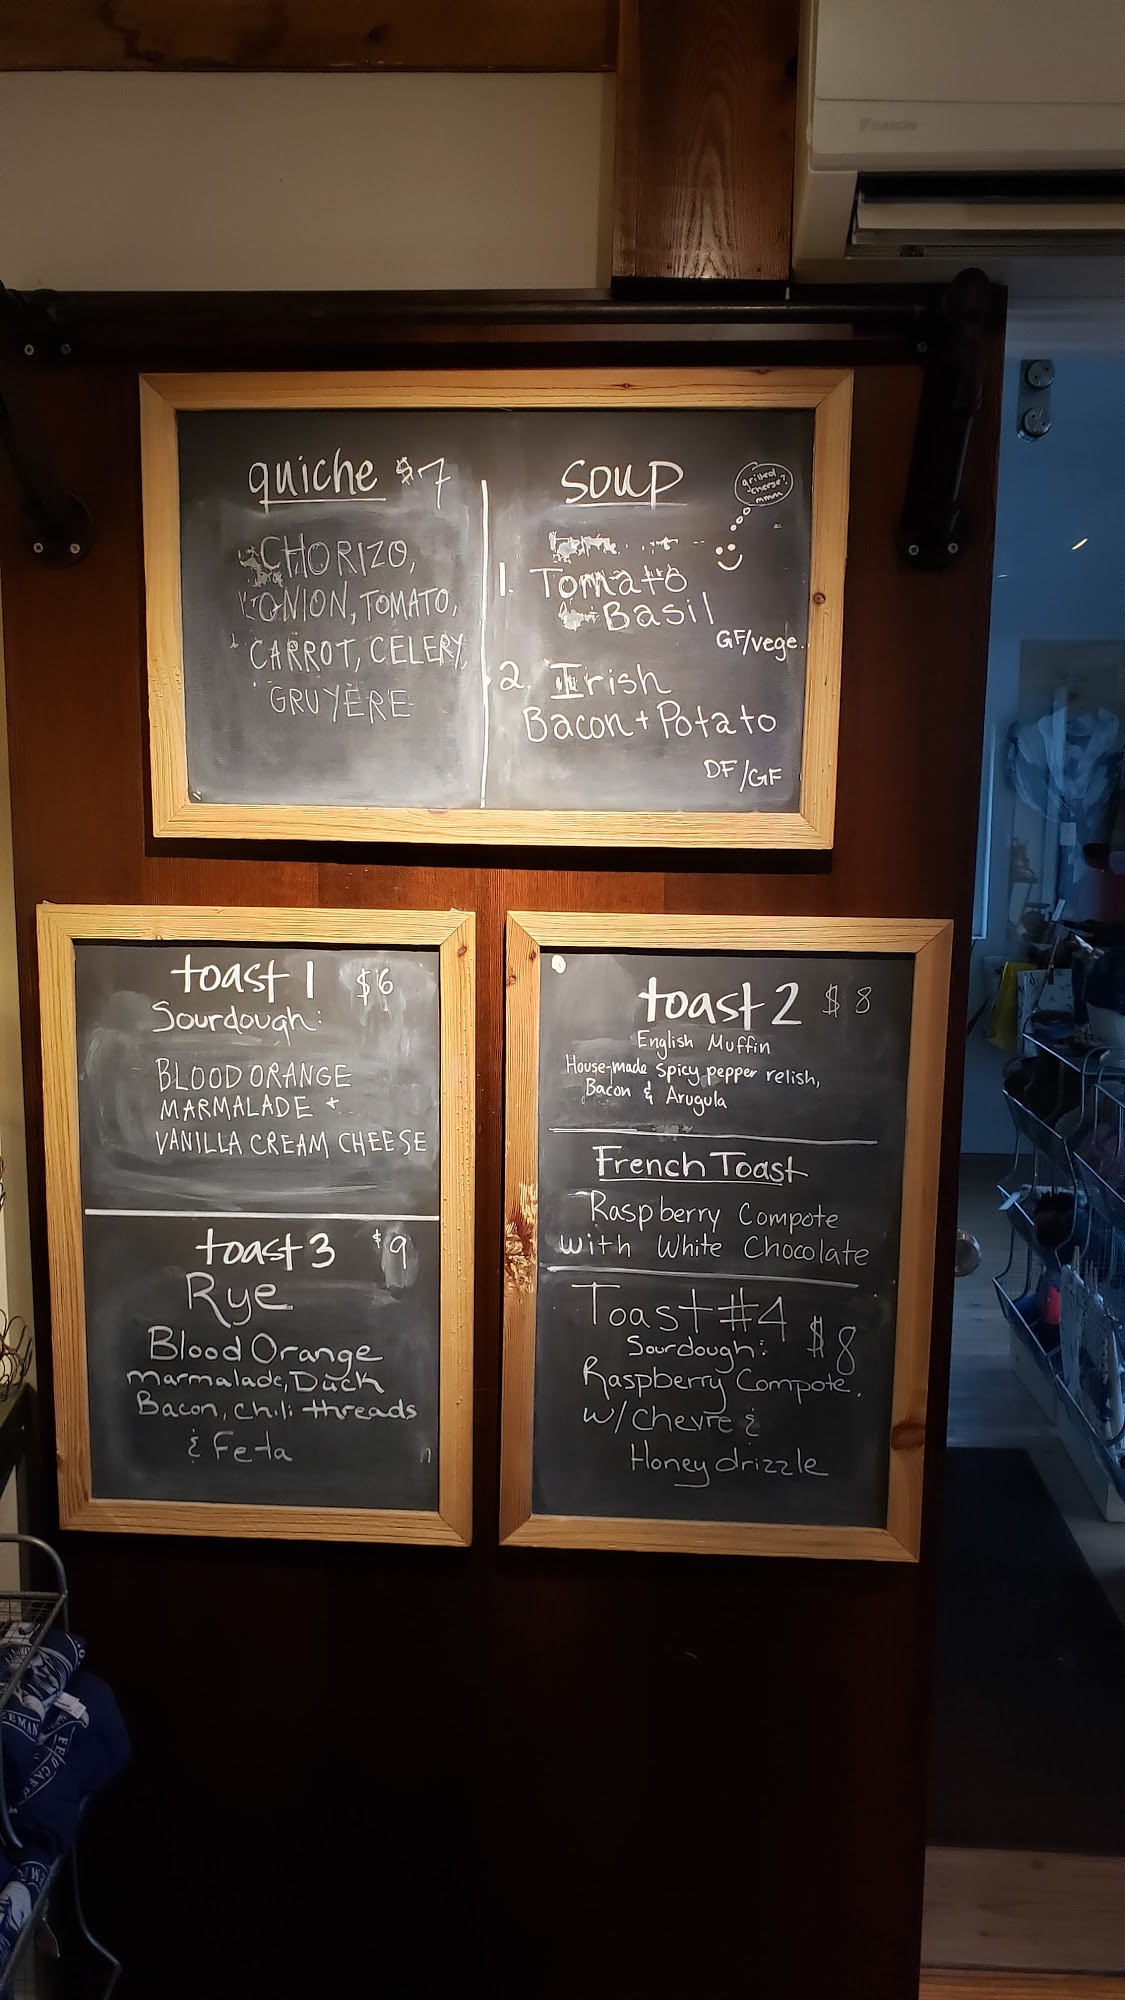 DAIKIN
quiche $7
CHORIZO,
ONION, TOMATO,
CARROT, CELERY,
GRUYERE
SOUP
grilled
cheese?
mmm
1. Tomato
Basil
GF/vege.
2. Irish
Bacon + Potato
DF/GF
toast 1 $6
Sourdough:
BLOOD ORANGE
MARMALADE +
VANILLA CREAM CHEESE
toast 3 $9
Rye
Blood Orange
marmalade, Duck
Bacon, chili threads
& Feta
toast 2 $8
English Muffin
House-made spicy pepper relish,
Bacon & Arugula
French Toast
Raspberry Compote
with White Chocolate
Toast #4 $8
Sourdough:
Raspberry Compote.
w/ Chevre &
Honey drizzle